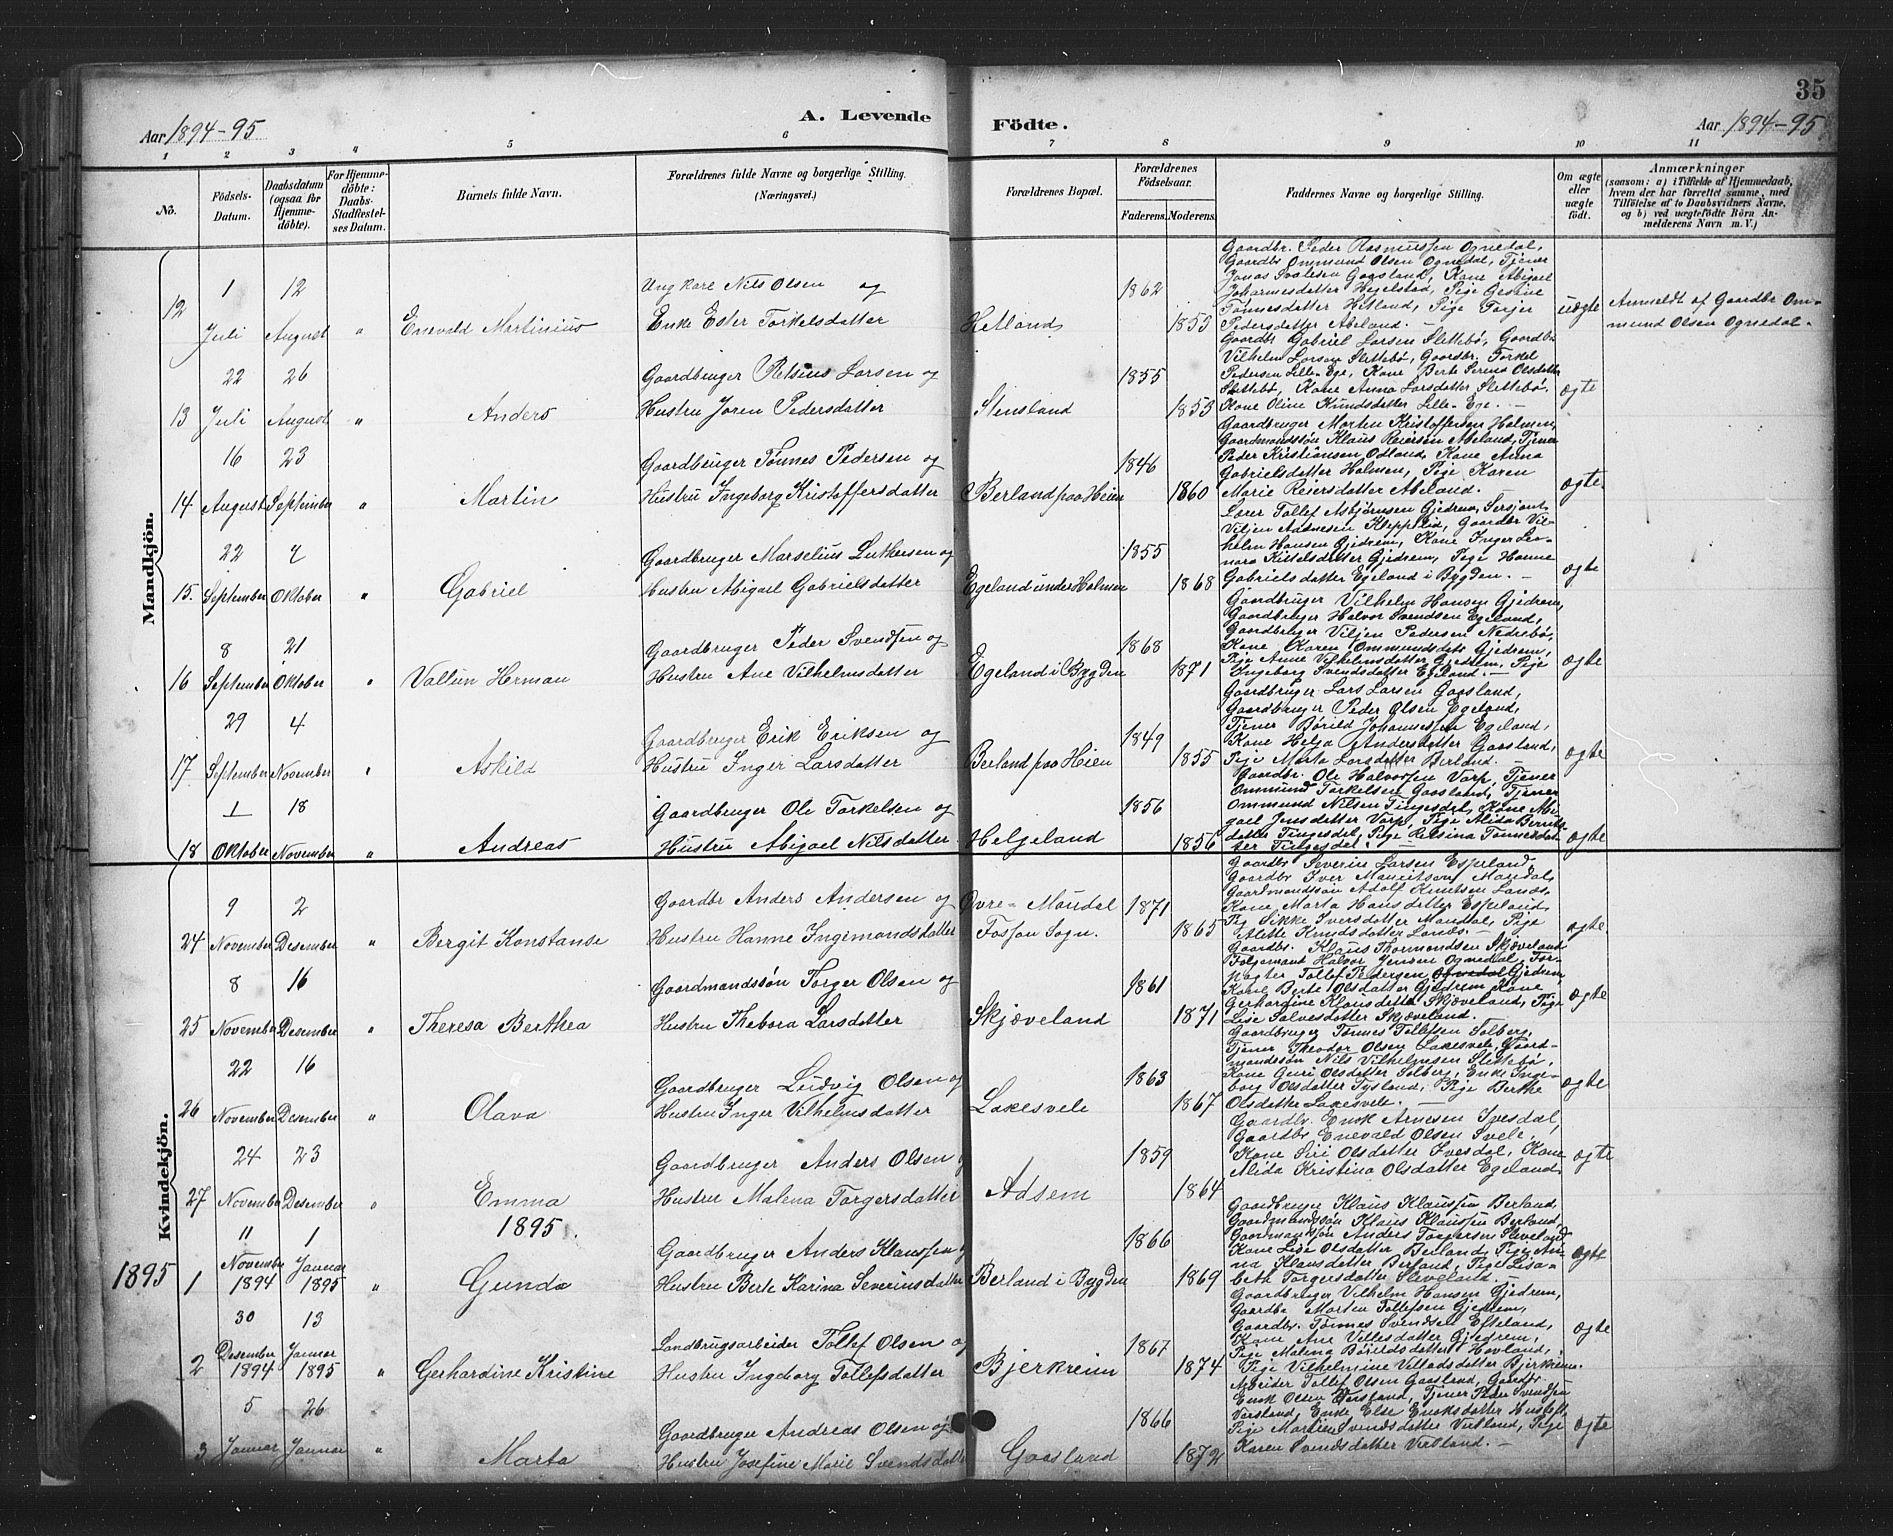 35
A. Levende Födte.
Aar 1894-95
Aar 1894-95
1 2 3 4 5 6 7 8 9 10 11
No.
Födsels-Datum.
Daabsdatum (ogsaa for Hjemmedöbte).
For Hjemmedöbte: Daabs-Stadfestelses Datum.
Barnets fulde Navn.
Forældrenes fulde Navne og borgerlige Stilling. (Næringsvei.)
Forældrenes Bopæl.
Forældrenes Födselsaar.
Faderens. Moderens.
Faddernes Navne og borgerlige Stilling.
Om ægte eller uægte födt.
Anmærkninger
(saasom: a) i Tilfælde af Hjemmedaab, hvem der har forrettet samme, med Tilföielse af to Daabsvidners Navne, og b) ved uægtefödte Börn Anmelderens Navn m. V.)
Mandkjön.
12
1 Juli
12 August
"
Enevald Martinius
Ungkare Nils Olsen og
Enke Ester Torkelsdatter
Helland
1862
1853
Gaardbr. Peder Rasmussen Ognedal,
Gaardbr Ommund Olsen Ognedal, Tjener
Jonas Svalesen Gaasland, Kone Abigael
Johannesdatter Hegelstad, Pige Gesine
Tønnesdatter Hetland, Pige Torjer
Pedersdatter Abeland. —
uægte
Anmeldt af Gaardbr Om-
mund Olsen Ognedal.
13
22 Juli
26 August
"
Anders
Gaardbruger Retsius Larsen og
Hustru Joren Pedersdatter
Stensland
1855
1853
Gaardbr Gabriel Larsen Slettebø, Gaardbr.
Vilhelm Larsen Slettebø, Gaardbr. Torkel
Pedersen Lille-Ege, Kone Berte Serina Olsdatter
Slettebø, Kone Anna Larsdatter Slettebø.
Kone Oline Knudsdatter Lille-Ege. —
ægte
14
16 August
23 September
"
Martin
Gaardbruger Tønnes Pedersen og
Hustru Ingeborg Kristoffersdatter
Berland paa Heien
1846
1860
Gaardbruger Morten Kristoffersen Holmen,
Gaardmandssøn Klaus Reiersen Abeland, Tjener
Peder Kristiansen Odland, Kone Anna
Gabrielsdatter Holmen, Pige Karen
Marie Reiersdatter Abeland.
ægte.
15.
22 September
7 Oktober
"
Gabriel
Gaardbruger Marselius Luthersen og
Hustru Abigael Gabrielsdatter
Egeland under Holmen
1855
1868
Lærer Tollef Asbjørnsen Gjedrem, Sersjant
Viljen Adnesen Kleppelid, Gaardbr Vil-
helm Hansen Gjedrem, Kone Inger Le-
nara Kittelsdatter Gjedrem, Pige Hanne
Gabrielsdatter Egeland i Bygden. —
ægte
16
8 September
21 Oktober
"
Vallun Herman
Gaardbruger Peder Svendsen og
Hustru Ane Vilhelmsdatter
Egeland i Bygden
1868
1871
Gaardbruger Vilhelm Hansen Gjedrem,
Gaardbruger Halvor Svendsen Egeland,
Gaardbruger Viljen Pedersen Nedrebø,
Kone Karen Ommundsdatr Gjedrem,
Pige Anne Vilhelmsdatter Gjedrem, Pige
Ingeborg Svendsdatter Egeland. —
ægte
17
29 September
4 November
"
Askild
Gaardbruger Erik Eriksen og
Hustru Inger Larsdatter
Berland paa Heien
1849
1855
Gaardbruger Lars Larsen Gaasland,
Gaardbruger Peder Olsen Egeland,
Tjener Børild Johannessen Egeland,
Kone Helga Andersdatter Gaasland,
Pige Marta Larsdatter Berland. —
ægte
18
1 Oktober
18 November
"
Andreas
Gaardbruger Ole Torkelsen og
Hustru Abigael Nilsdatter
Helgeland
1856
1856
Gaardbr. Ole Halvorsen Varp, Tjener
Ommund Torkelsen Gaasland, Tjener
Ommund Nilsen Tingesdal, Kone Abi-
gael Jensdatter Varp, Pige Alida Berents-
datter Tingesdel, Pige Retsina Tønnesdat-
ter Tingesdel.
ægte
Kvindekjön.
24
9 November
2 Desember
"
Bergit Konstanse
Gaardbr Anders Andersen og
Hustru Hanne Ingimondsdatter
Øvre-Maudal
Fossan Sogn.
1871
1865
Gaardbr Severin Larsen Espeland,
Gaardbr Iver Mauritsen Maudal,
Gaardmandssøn Adolf Knutsen Lanæs.
Kone Marta Hansdatter Espeland
Pig Sikke Iversdatter Maudal, Pige
Alette Knudsdatter Lanæs. —
ægte
25
8 November
16 Desember
"
Theresa Berthea
Gaardmandssøn Torger Olsen og
Hustru Thebora Larsdatter
Skjæveland
1861
1871
Gaardbr. Klaus Thormondsen Skjæveland
Folgemand Halvor Jensen Ognedal, For-
pagter Tollef Pedersen Ognedal Gjedrem,
Kone Berte Olsdatter Gjedrem Kone
Gerhardine Klausdatter Skjæveland, Pige
Lise Salvesdatter Skjæveland.
ægte
26
22 November
16 Desember
"
Olava
Gaardbruger Ludvig Olsen og
Hustru Inger Vilhelmsdatter
Laksesvele
1863
1867
Gaardbruger Tønnes Tollefsen Solberg,
Tjener Theodor Olsen Laksesvele, Gaard-
mandssøn Nils Vilhelmsen Slettebø,
Kone Guri Olsdatter Solberg, Enke Inge-
borg Olsdatter Tysland, Pige Berthe
Olsdatter Laksesvele. —
ægte
27
24 November
23 Desember
"
Emma
Gaardbruger Anders Olsen og
Hustru Malena Torgersdatter
Adsem
1859
1864
Gaardbr. Enok Arnesen Ivesdal,
Gaardbr Enevald Olsen Svele
Kone Siri Olsdatter Ivesdal, Kone
Alida Kristina Olsdatter Egeland
ægte
1895.
1895
1
11 November 1894
1 Januar 1895
"
Gunda
Gaardbruger Anders Klaussen og
Hustru Berte Karina Severinsdatter
Berland i Bygden
1866
1869
Gaardbruger Klaus Klaussen Berland,
Gaardmandssøn Klaus Klaussen Berland,
Gaardmandssøn Anders Torgersen Sleveland
Kone Lise Olsdatter Berland, Pige An-
na Klausdatter Berland, Pige Lisa-
beth Torgersdatter Sleveland. —
ægte
2
30 Desember 1894
13 Januar 1895
"
Gerhardine Kristine
Landbrugsarbeider Tollef Olsen og
Hustru Ingeborg Tollefsdatter
Bjerkreim
1867
1874
Gaardbruger Vilhelm Hansen Gjedrem,
Gaardbr Morten Tollefsen Gjedrem,
Gaardbr. Tønnes Svendsen Efteland,
Kone Ane Villesdatter Gjedrem,
Pige Malena Børildsdatter Hovland,
Pige Vilhelmine Velladsdatter Bjerkreim.
ægte
3
5 Januar
26 Januar
"
Marta
Gaardbruger Andreas Olsen og
Hustru Josefine Marie Svendsdatter
Gaasland
1866
1872
Arbeider Tollef Olsen Gaasland, Gaardbr.
Enok Olsen Versland, Tjener Peder Svendsen
Versland, Enke Else Enoksdatter
Pige Martine Svendsdatter Versland, Pige
Karen Svendsdatter Versland. —
ægte